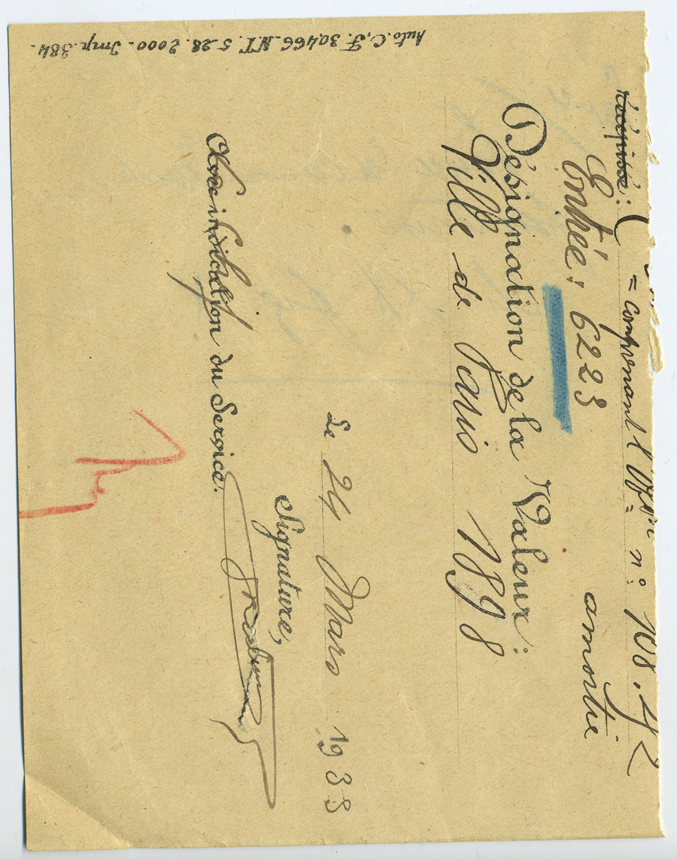 récépissé:
= comprenant l'Obon n°: 108.
Entrée: 6223 amortie
Désignation de la Valeur:
Ville de Paris 1898
Le 24 Mars 1933
Signature,
Avec indication du Service.
Auto. C.F. 30466. NT. 5.28. 2000. Imp. 384.